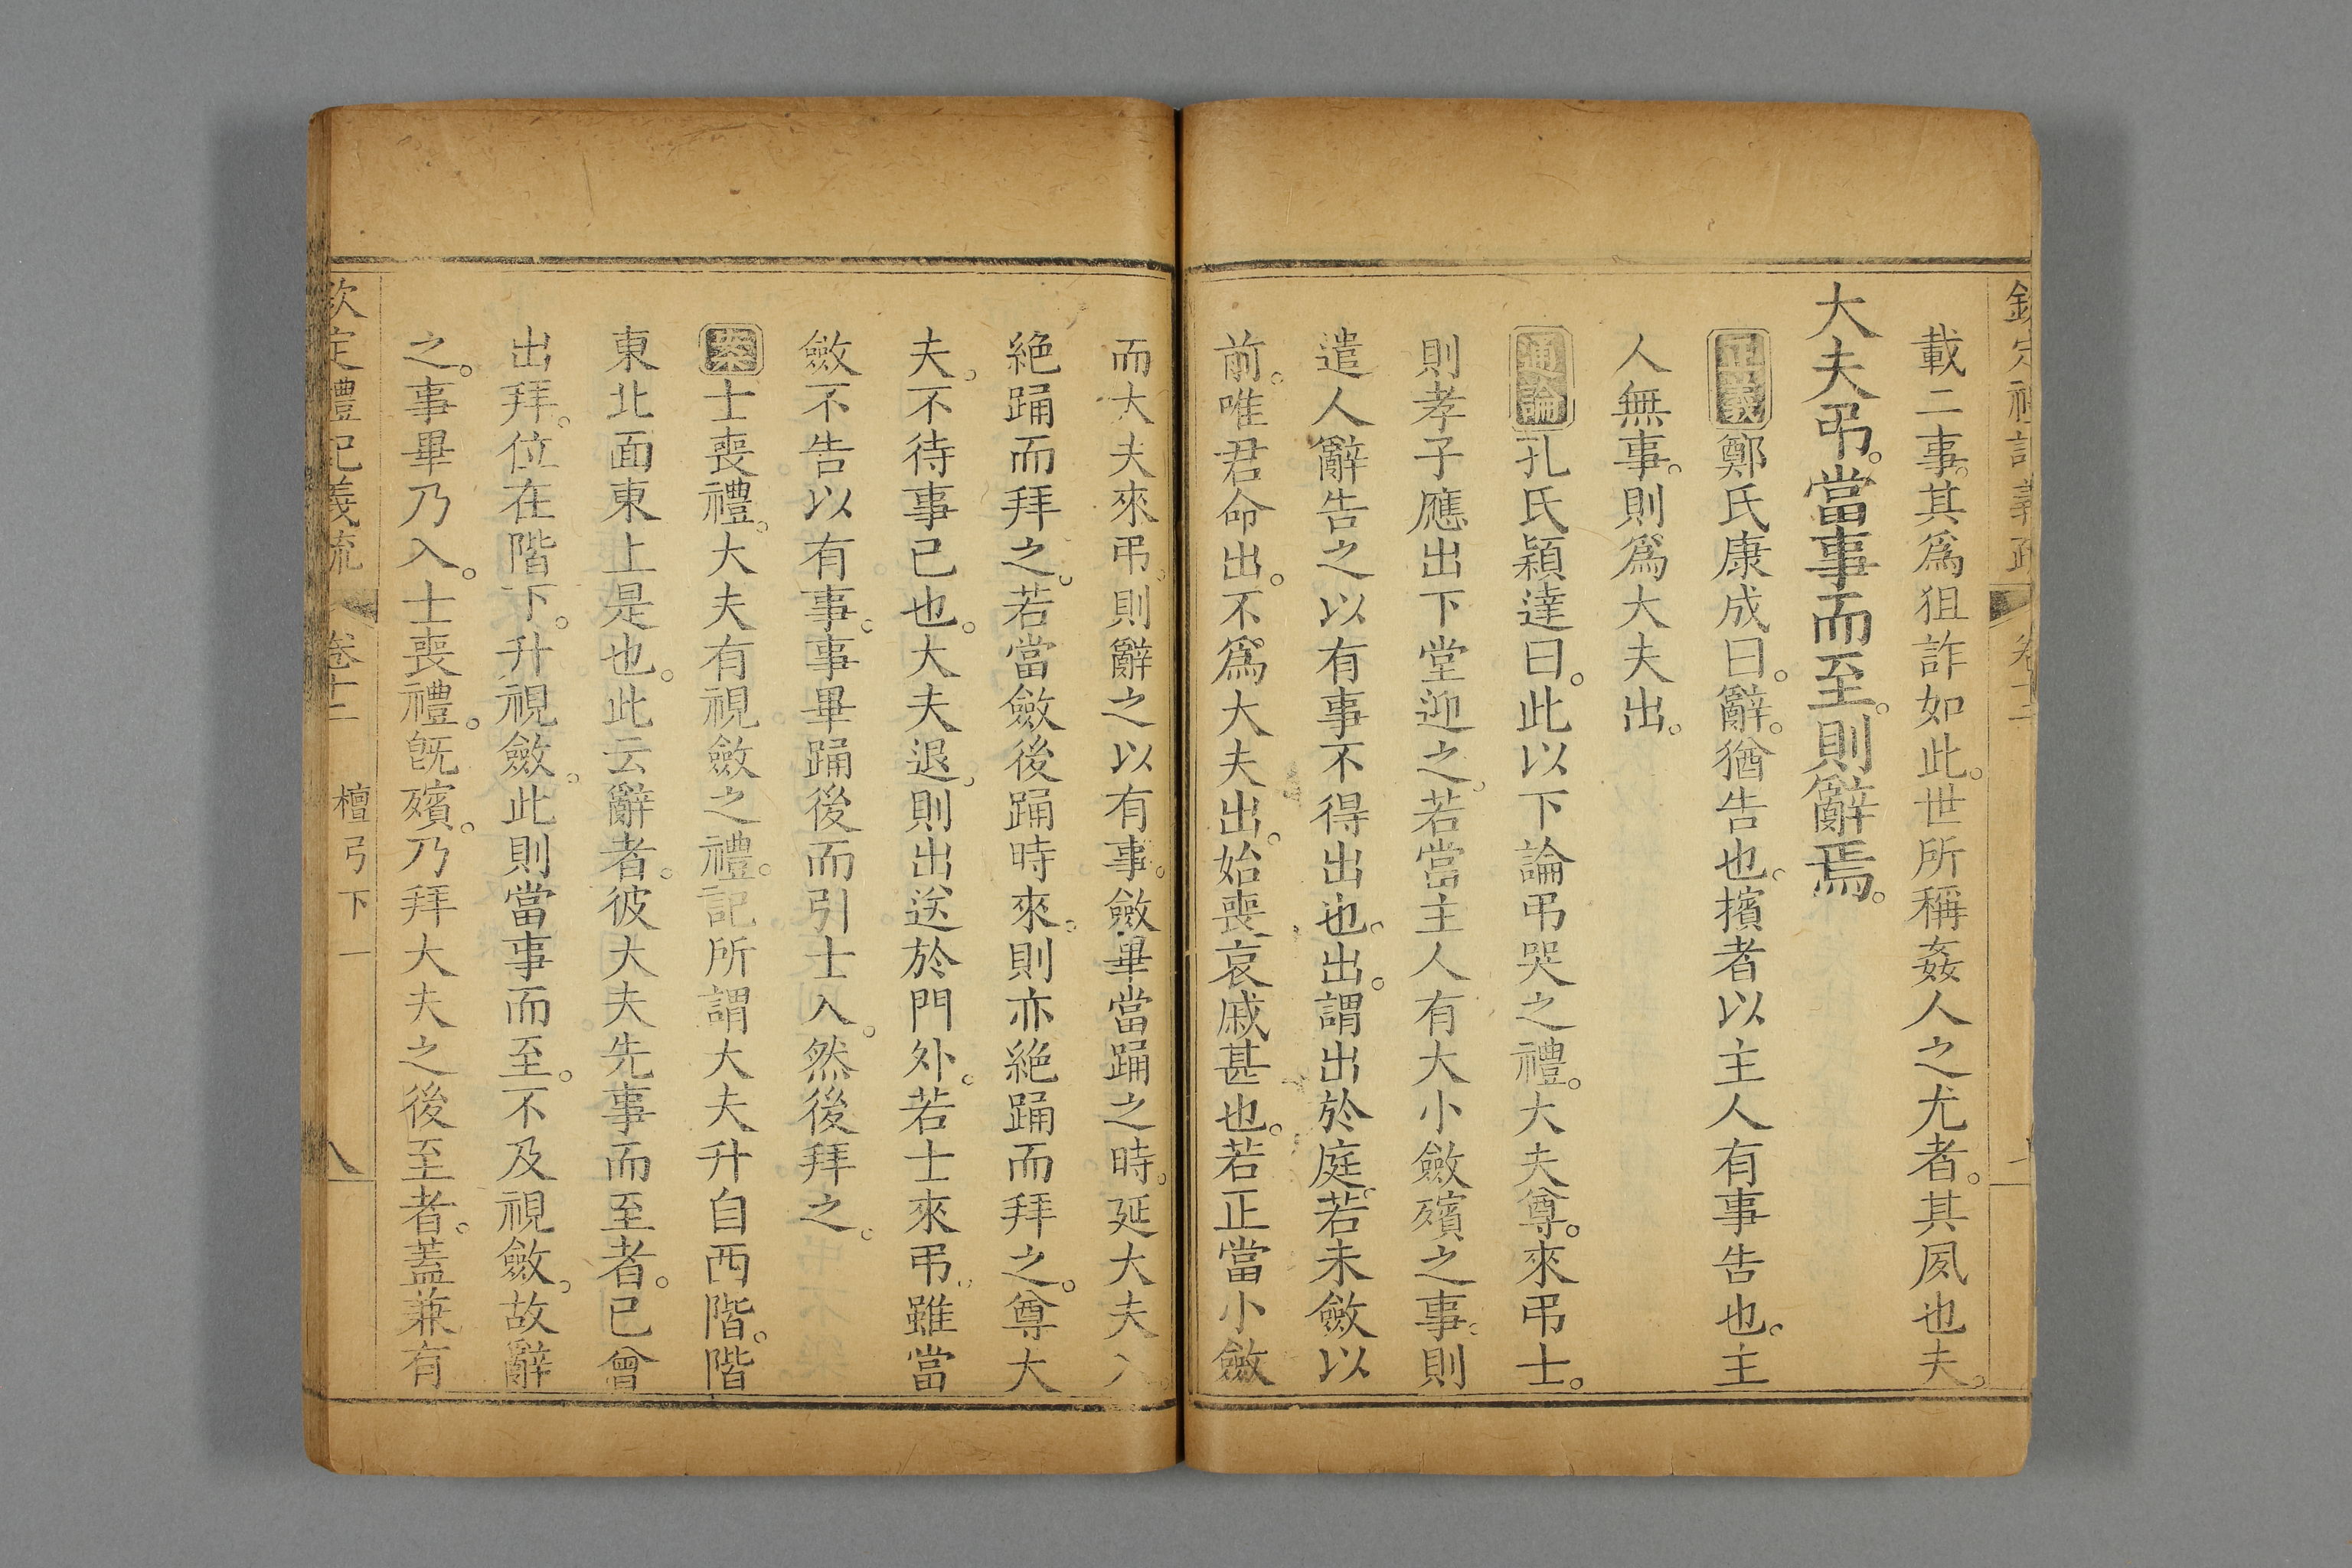 欽定禮記義疏 卷十二 二
載二事。其爲狙詐如此。世所稱姦人之尤者。其夙也夫。
大夫弔。當事而至。則辭焉。
正義鄭氏康成曰。辭。猶告也。擯者以主人有事告也。主
人無事。則爲大夫出。
通論孔氏穎達曰。此以下論弔哭之禮。大夫尊。來弔士。
則孝子應出下堂迎之。若當主人有大小斂殯之事。則
遣人辭告之以有事不得出也。出。謂出於庭。若未斂以
前。唯君命出。不爲大夫出。始喪哀戚甚也。若正當小斂
而大夫來弔。則辭之以有事。斂畢當踊之時。延大夫入
絕踊而拜之。若當斂後踊時來。則亦絕踊而拜之。尊大
夫。不待事已也。大夫退。則出送於門外。若士來弔。雖當
斂不告以有事。事畢踊後而引士入。然後拜之。
案士喪禮。大夫有視斂之禮。記所謂大夫升自西階。階
東北面東上是也。此云辭者。彼大夫先事而至者。已曾
出拜。位在階下。升視斂。此則當事而至。不及視斂。故辭
之。事畢乃入。士喪禮。旣殯。乃拜大夫之後至者。蓋兼有
欽定禮記義疏 卷十二 檀弓下一 八